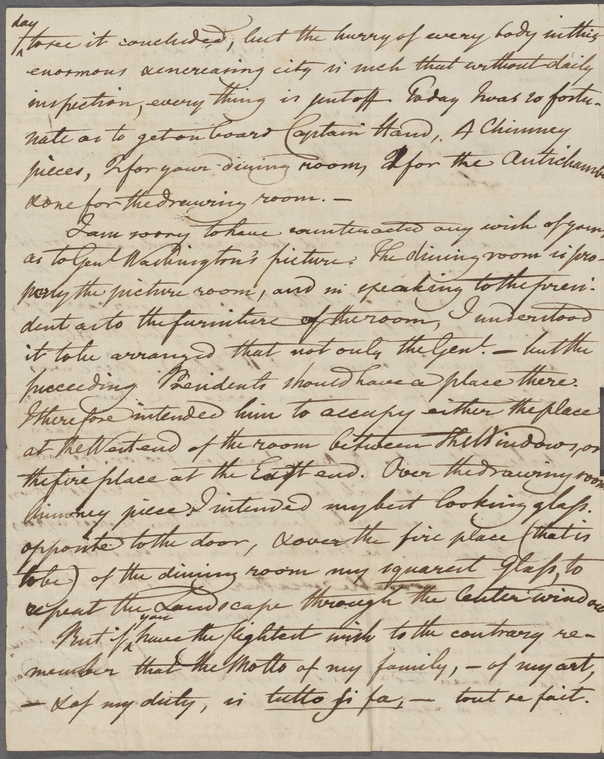 day
to see it concluded, but the hurry of every body in this
enormous & encreasing city is such that without daily
inspection, every thing is put off. Today I was so fortu-
nate as to get on board Captain Hand, 4 Chimney
pieces, 2 for your dining room, 2 for the Antichamb
& one for the drawing room. —
I am sorry to have counteracted any wish of yours
as to Genl Washington's picture. The dining room is pro-
perly the picture room, and in speaking to the presi-
dent as to the furniture of the room, I understood
it to be arranged that not only the Genl. — but the
succeeding Presidents should have a place there.
I therefore intended him to occupy either the place
at the West end of the room between the Windows, or
the fire place at the East end. Over the drawing room
chimney piece I intended my best looking glass.
opposite to the door, & over the fire place (that is
to be) of the dining room my squarest Glass, to
repeat the Landscape through the Center window
But if you have the slightest wish to the contrary re-
member that the Motto of my family, — of my art,
— & of my duty, is tutto si fa, — tout se fait.